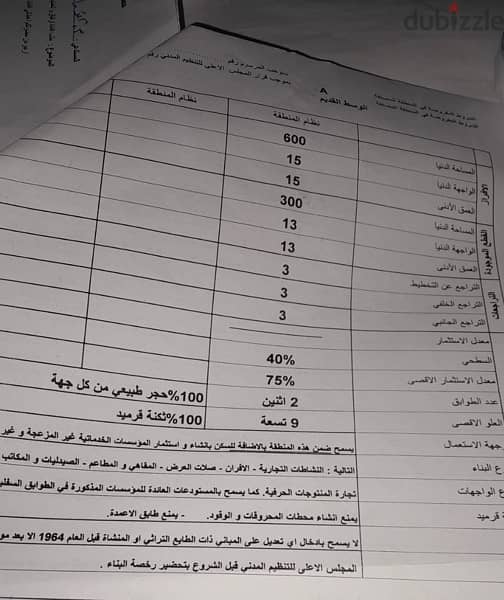 dubizzle
بموجب المرسوم رقم
بموجب قرار المجلس الاعلى للتنظيم المدني رقم
الوسط القديم A
نظام المنطقة
نظام المنطقة
الأفراز
المساحة الدنيا 600
الواجهة الدنيا 15
العمق الأدنى 15
القطع الموجودة
المساحة الدنيا 300
الواجهة الدنيا 13
العمق الأدنى 13
التراجعات
التراجع عن التخطيط 3
التراجع الخلفي 3
التراجع الجانبي 3
معدل الاستثمار
السطحي 40%
معدل الاستثمار الاقصى 75%
عدد الطوابق 2 اثنين 100%حجر طبيعي من كل جهة
العلو الاقصى 9 تسعة 100%تكنة قرميد
جهة الاستعمال يسمح ضمن هذه المنطقة بالاضافة للسكن بانشاء و استثمار المؤسسات الخدماتية غير المزعجة و غير
ع البناء التالية : النشاطات التجارية - الافران - صلات العرض - المقاهي و المطاعم - الصيدليات و المكاتب
ع الواجهات تجارة المنتوجات الحرفية. كما يسمح بالمستودعات العائدة للمؤسسات المذكورة في الطوابق السفلي
ة قرميد يمنع انشاء محطات المحروقات و الوقود. - يمنع طابق الاعمدة.
لا يسمح بادخال اي تعديل على المباني ذات الطابع التراثي او المنشاة قبل العام 1964 الا بعد مو
المجلس الاعلى للتنظيم المدني قبل الشروع بتحضير رخصة البناء .